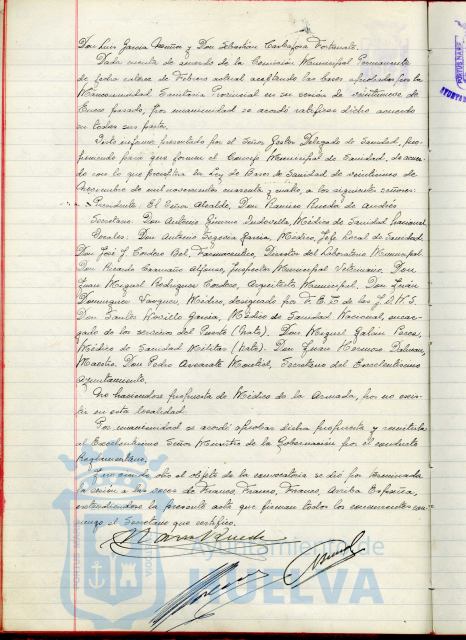 Don Luis García Muñoz y Don Sebastián Carbajosa Fortunato.
Dada cuenta de acuerdo de la Comisión Municipal Permanente
de fecha catorce de Febrero actual aceptando las bases aprobadas por la
Mancomunidad Sanitaria Provincial en su sesión de veintinueve de
Enero pasado, por unanimidad se acordó ratificar dicho acuerdo
en todas sus partes.
Visto informe presentado por el Señor Gestor Delegado de Sanidad, pro-
poniendo para que formen el Consejo Municipal de Sanidad, de acuer-
do con lo que preceptúa la Ley de Bases de Sanidad de veinticinco de
Noviembre de mil novecientos cuarenta y cuatro, a los siguientes señores:
Presidente: El Señor Alcalde, Don Ramiro Rueda de Andrés
Secretario: Don Antonio Médico de Sanidad Nacional
Vocales: Don Antonio Segovia García, Médico, Jefe Local de Sanidad.
Don José J. Cordero Bel, Farmaceutico, Director del Laboratorio Municipal.
Don Ricardo Alfonso, Inspector Municipal Veterinario. Don
Juan Miguel Rodríguez Cordero, Arquitecto Municipal. Don Juan
Domínguez Vázquez, Médico, designado por F. E. T. de las J.O.N.S.
Don Carlos García, Médico de Sanidad Nacional, encar-
gado de los servicios del Puerto (nato). Don Miguel Galán
Médico de Sanidad Militar (nato). Don Juan Hermoso
Maestro. Don Pedro Secretario del Excelentísimo
Ayuntamiento.
No haciéndose propuesta de Médico de la Armada, por no exis-
tir en esta localidad.
Por unanimidad se acordó aprobar dicha propuesta y remitirla
al Excelentísimo Señor Ministro de la Gobernación por el conducto
Reglamentario.
Y no siendo otro el objeto de la convocatoria se dió por terminada
la sesión a las voces de Franco, Franco, Franco, Arriba España,
extendiéndose la presente acta que firman todos los concurrentes con-
migo el Secretario que certifico.
Ayuntamiento de
HUELVA